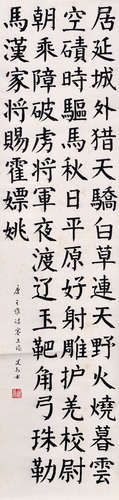 居延城外猎天驕白草連天野火燒暮雲
空磧時驅馬秋日平原好射雕护羌校尉
朝乘障破虏將軍夜渡辽玉靶角弓珠勒
馬漢家將賜霍嫖姚
唐王維詩塞上作